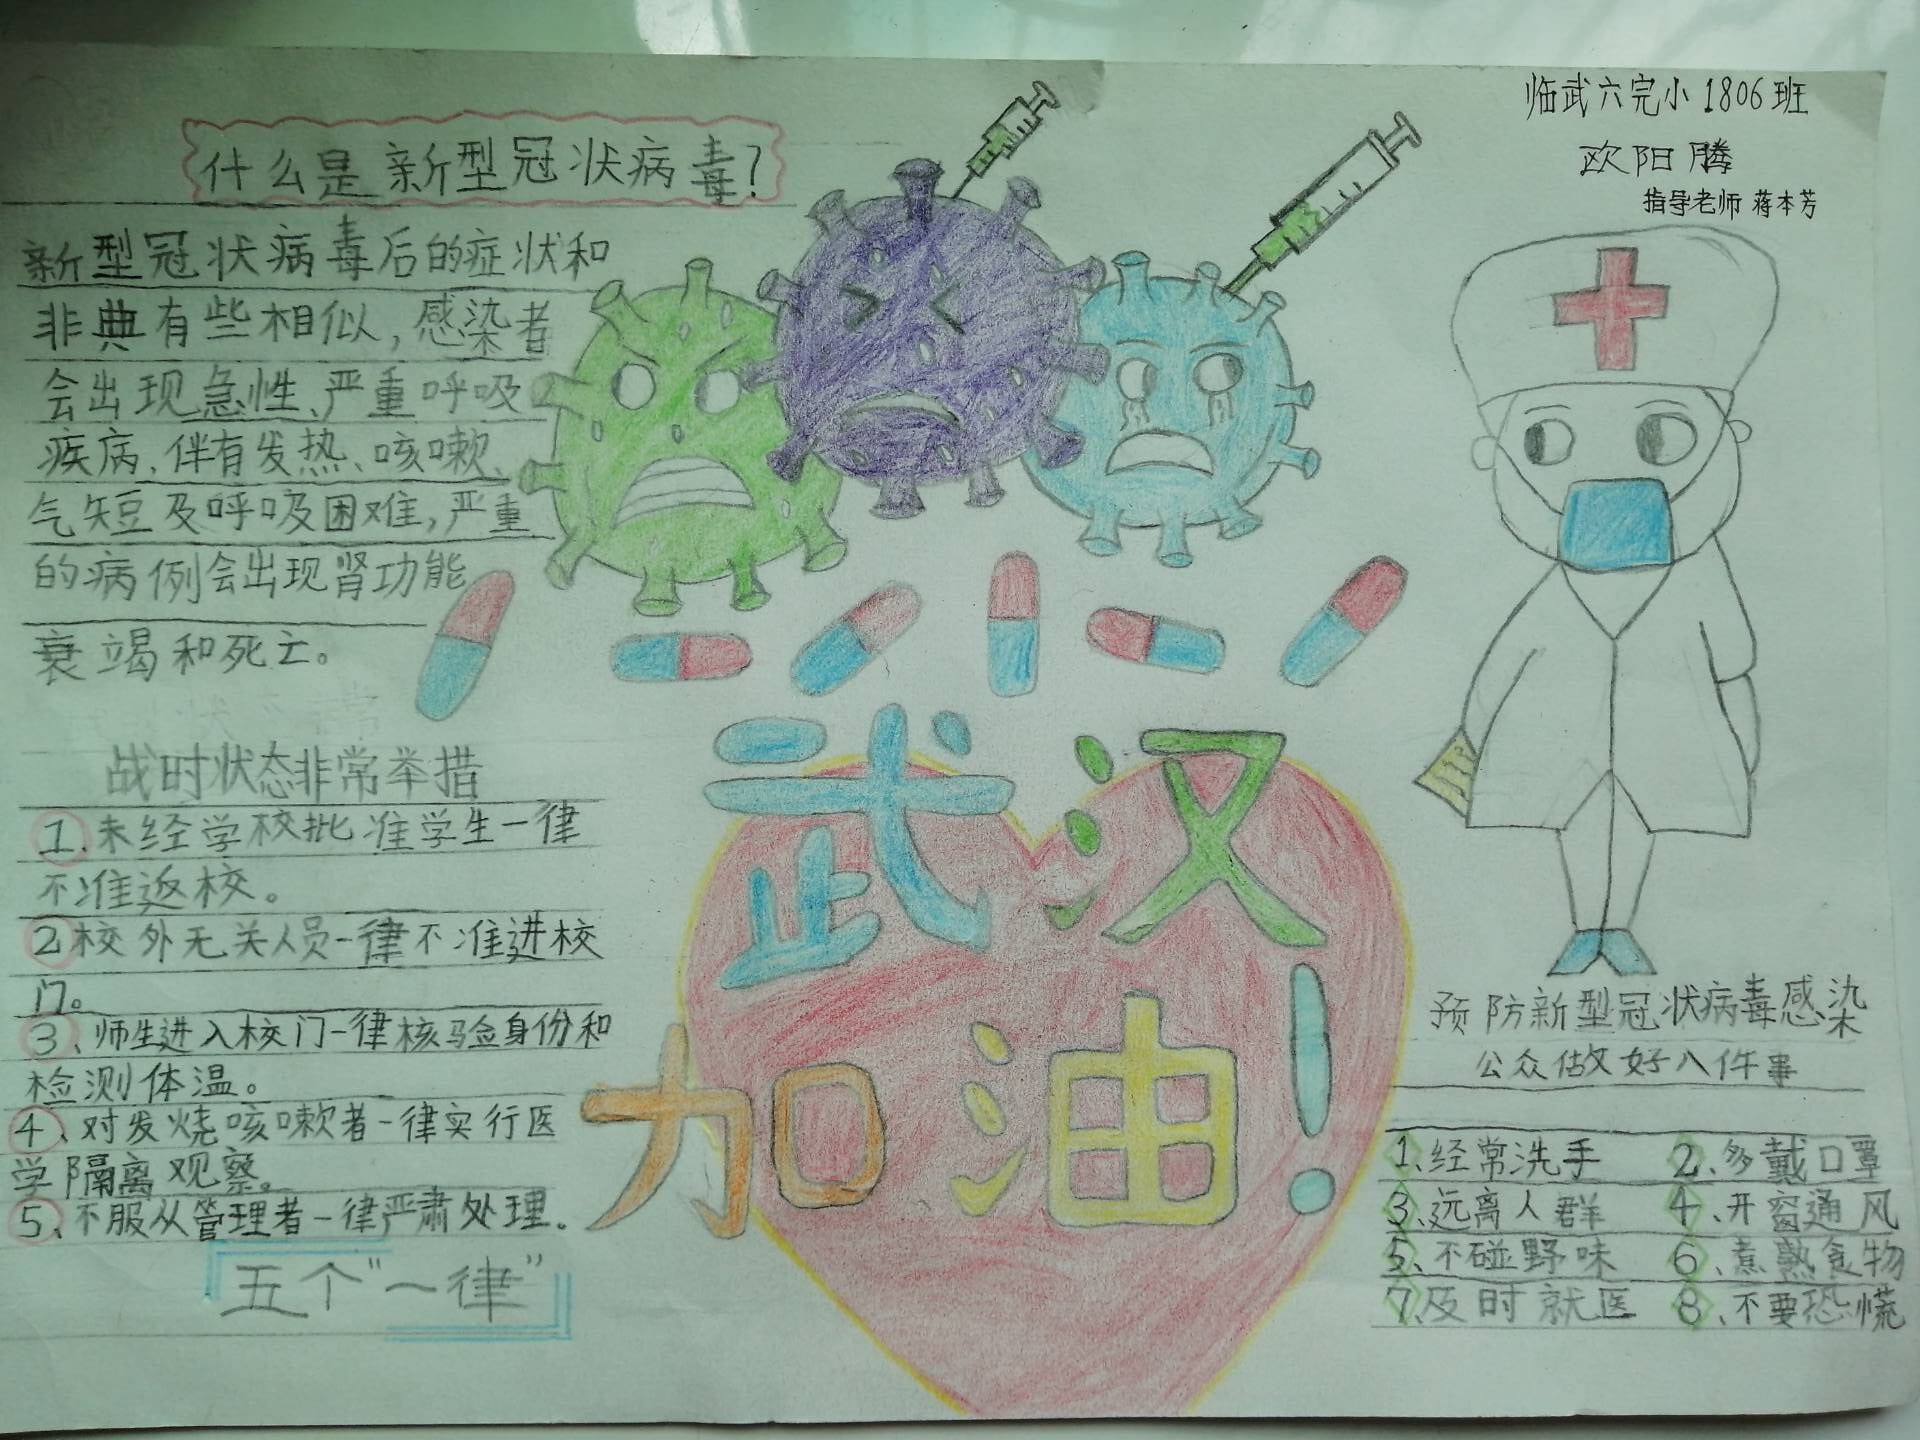 临武六完小1806班
欧阳腾
指导老师 蒋本芳
什么是新型冠状病毒?
新型冠状病毒后的症状和
非典有些相似,感染者
会出现急性、严重呼吸
疾病、伴有发热、咳嗽、
气短及呼吸困难,严重
的病例会出现肾功能
衰竭和死亡。
战时状态非常举措
1.未经学校批准学生一律
不准返校。
2校外无关人员一律不准进校
门。
3、师生进入校门一律核验身份和
检测体温。
4、对发烧咳嗽者一律实行医
学隔离观察。
5、不服从管理者一律严肃处理。
五个"一律"
武汉
加油!
预防新型冠状病毒感染
公众做好八件事
1、经常洗手 2、多戴口罩
3、远离人群 4、开窗通风
5、不碰野味 6、煮熟食物
7、及时就医 8、不要恐慌